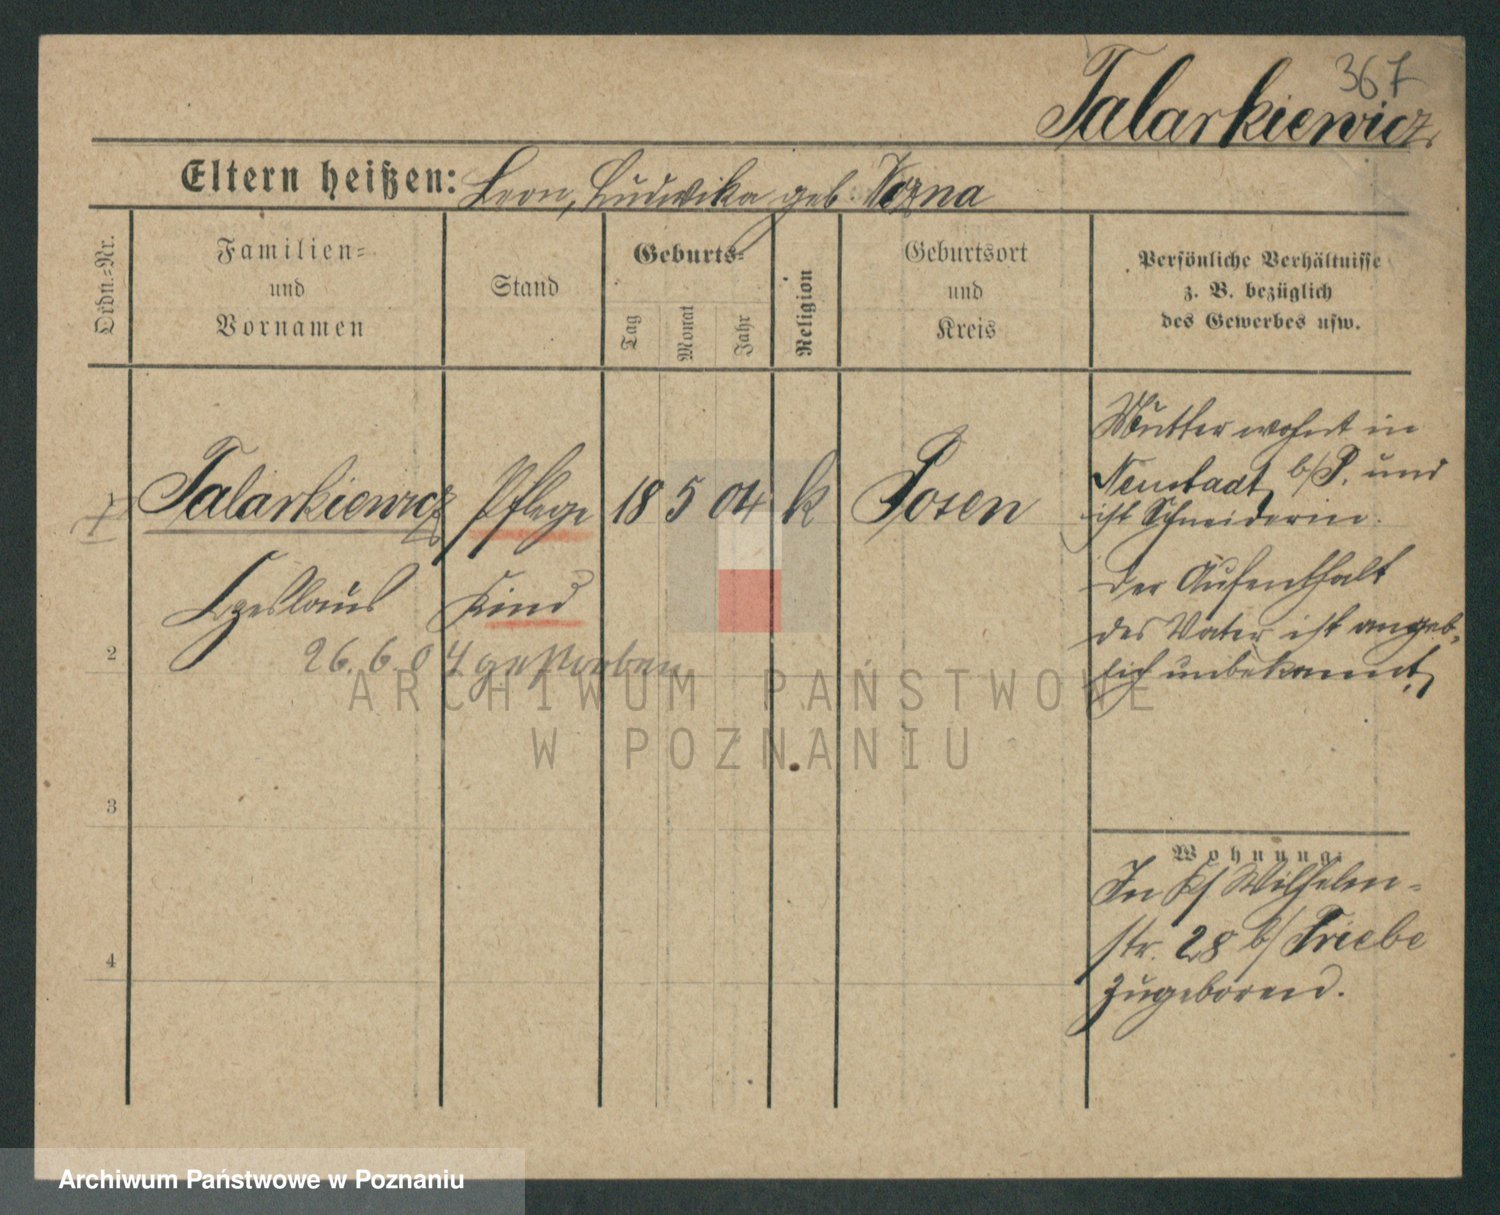 367
Talarkiewicz
Eltern heißen: Leon, Ludwika geb. Wozna
Ordn.=Nr.
Familien=
und
Vornamen
Stand
Geburts=
Tag
Monat
Jahr
Religion
Geburtsort
und
Kreis
Persönliche Verhältnisse
z. B. bezüglich
des Gewerbes usw.
Talarkiewicz Pflege 18 5 04 k Posen
Czeslaus Kind
26. 6. 04 gestorben
Mutter wohnt in
Neustadt b/P. und
ist Schneiderin.
Der Aufenthalt
des Vater ist angeb=
lich unbekannt,
2
3
4
Wohnung:
In Wilhelm=
str. 28 b/ Triebe
zugeborend.
ARCHIWUM PAŃSTWOWE
W POZNANIU
Archiwum Państwowe w Poznaniu